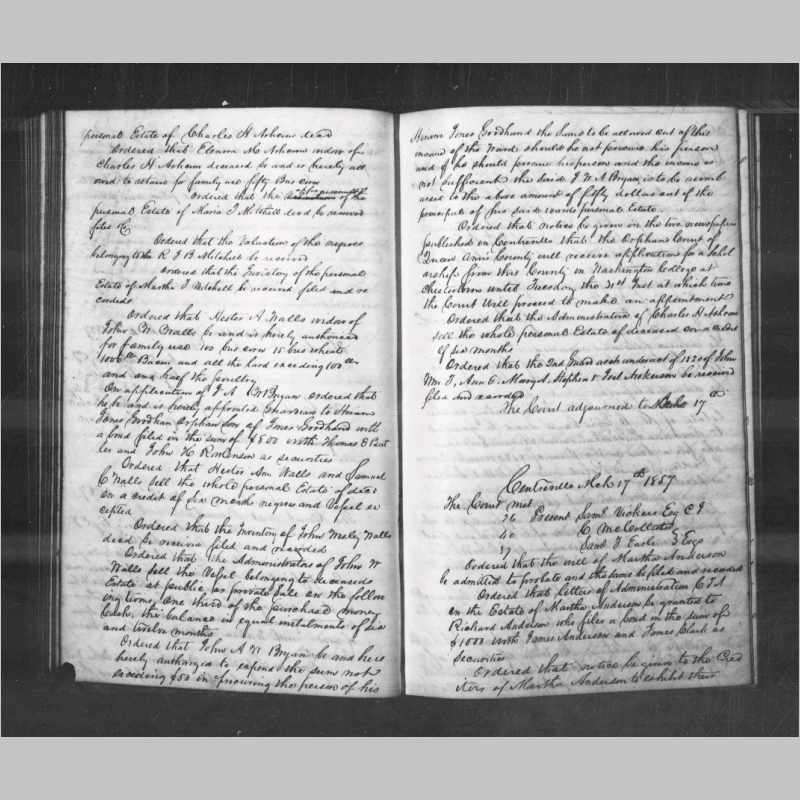 personal Estate of Charles H Ashcom decd
Ordered that Elenora M Ashcom widow of
Charles H Ashcom deceased be and is hereby all
owed to retain for family use fifty Bus corn
Ordered that the of the
personal Estate of Maria T Mitchell decd be received
filed &c
Ordered that the Valuation of the negroes
belonging to the R J B Mitchell be received
Ordered that the Inventory of the personal
Estate of Martha T Mitchell be received filed and re
corded
Ordered that Hester A. Walls widow of
John W Walls be and is hereby authorised
for family use 100 bus corn 15 bus wheat
1000 lbs Bacon and all the lard exceeding 100 lbs
and one half the poultry
On application of J A W Bryan ordered that
he be and is hereby appointed Guardian to Hiram
Jones Goodhan Orphan son of Jones Goodhand with
a bond filed in the sum of $500 with Thomas E
ler and John H as securities
Ordered that Hester Ann Walls and Samuel
C Walls sell the whole personal Estate of decd
on a credit of six months negroes and Vessel ex
cepted
Ordered that the Inventory of John Wesly Walls
decd be receive filed and recorded
Ordered that the Administrators of John W
Walls sell the Vessel belonging to deceaseds
Estate at public or private Sale on the follow
ing terms, One third of the purchased money
Cash, the balance in equal instalments of six
and twelve months
Ordered that John A W Bryan be and here
hereby authorized to expend the sum not
exceeding $50 in procuring the person of his
Hiram Jones Goodhand the Sums to be allowed out of the
income of the Ward should he not procure his person
and if he should procure his person and the income is
not sufficient the said J W A Bryan is to be reimb
used to the above amount of fifty dollars out of the
principal of his said wards personal Estate.
Ordered that notice be given in the two newspapers
published in Centreville that the Orphans Court of
Queen Anns County will receive applications for a Schol
arship from this County in Washington College at
Chestertown until Tuesday the 31st Inst at which time
the Court Will proceed to make an appointment
Ordered that the Administrators of Charles H Ashcom
sell the whole personal Estate of deceased on a credit
of six months
Ordered that the 2nd Guard acct under act of 1820 of John
Wm T, Ann E. Mary A. Stephen & Jos Atkerson be received
filed and recorded
The Court adjourned to March 17th
Centreville Mch 17th 1857
The Court met
76 Present Saml Vickers Esq C J
40 C McCollister
17 Saml T Earle } Esqs
Ordered that the will of Martha Anderson
be admitted to probate and the same be filed and recorded
Ordered that letters of Administration C T A
on the Estate of Martha Anderson be granted to
Richard Anderson who files a bond in the sum of
$1000 with James Anderson and James Clark as
Securities
Ordered that notice be given to the Cred
itors of Martha Anderson to exhibit their